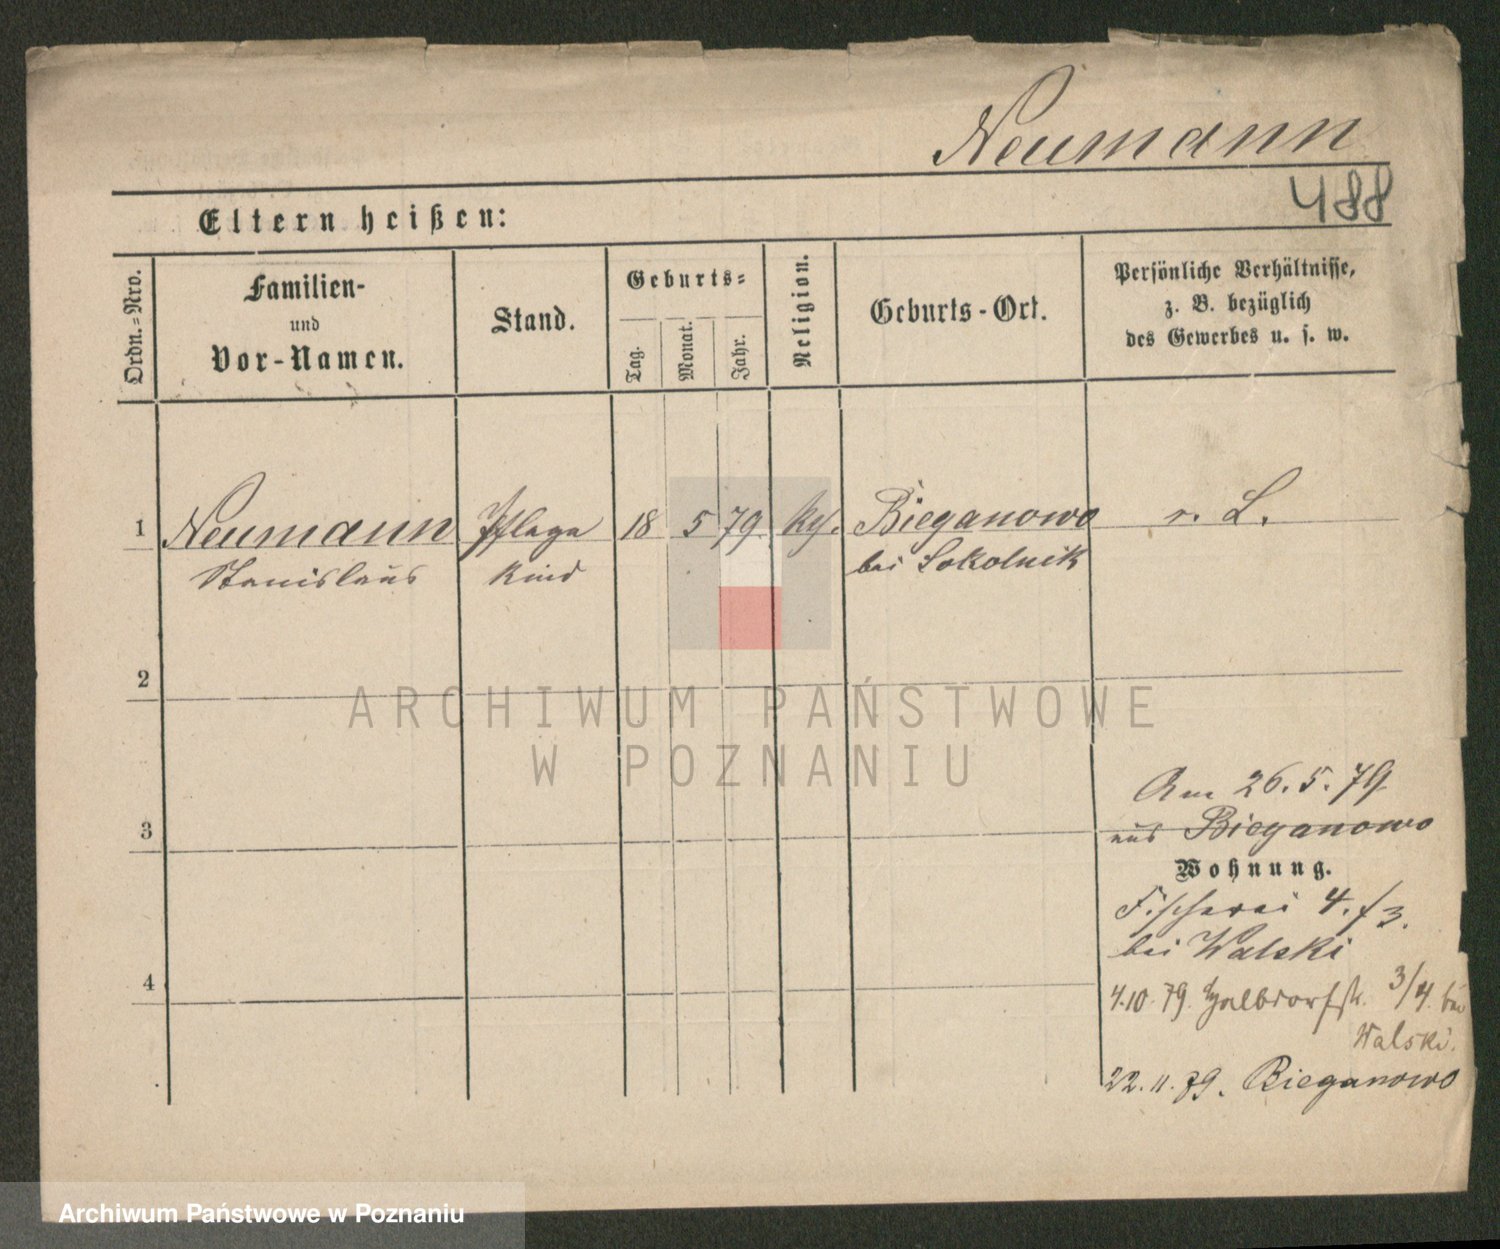 Neumann
488
Eltern heißen:
Ordn.=Nro.
Familien-
und
Vor-Namen.
Stand.
Geburts=
Tag.
Monat.
Jahr.
Religion.
Geburts-Ort.
Persönliche Verhältnisse,
z. B. bezüglich
des Gewerbes u. s. w.
1 Neumann Pflege 18 5 79 Bieganowo r. L.
Stanislaus kind bei Sokolnik
2
ARCHIWUM PAŃSTWOWE
W POZNANIU
Am 26.5.79
3 aus Bieganowo
Wohnung.
Fischerei 4./3.
bei Walski
4 4.10.79. Halbdorfstr. 3/4. bei
Walski.
22.11.79. Bieganowo
Archiwum Państwowe w Poznaniu